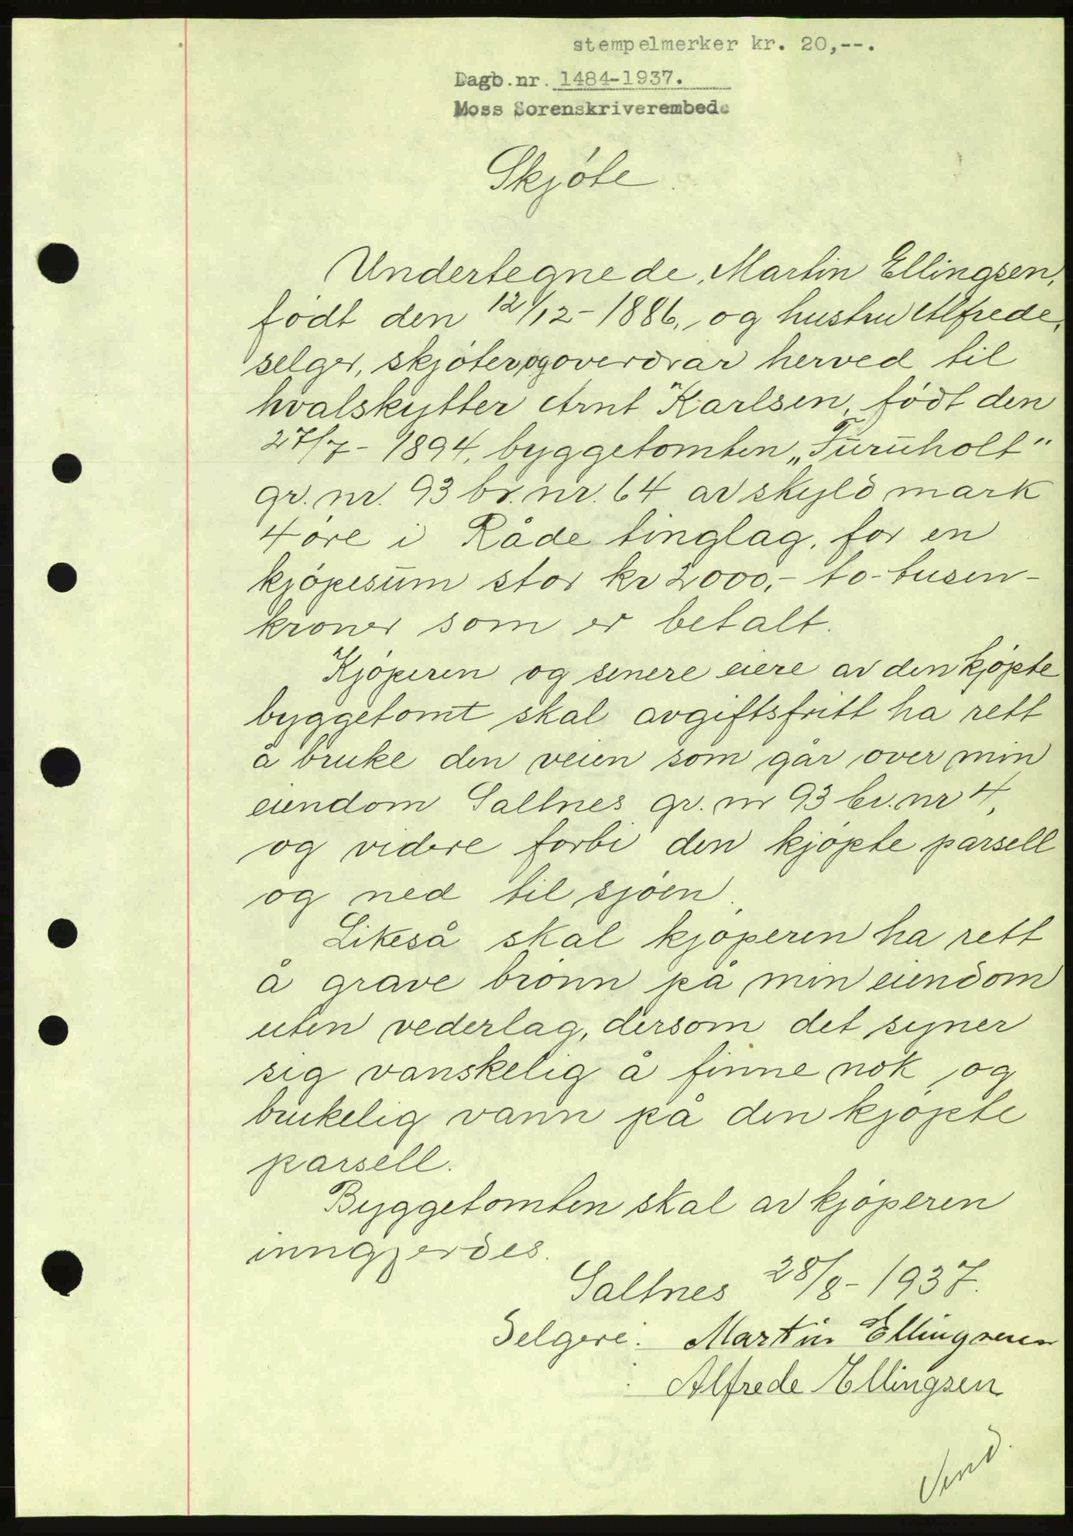 stempelmerker kr. 20,--.
Dagb.nr. 1484-1937.
Moss Sorenskriverembede
Skjøte.
Undertegnede, Martin Ellingsen,
født den 12/12-1886, og hustru Alfrede,
selger, skjøter, og overdrar herved til
hvalskytter Arnt Karlsen, født den
27/7-1894, byggetomten „Furuholt"
gr. nr. 93 br. nr. 64 av skyld mark
4 øre i Råde tinglag, for en
kjøpesum stor kr 2000,- to-tusen-
kroner som er betalt.
Kjøperen og senere eiere av den kjøpte
byggetomt skal avgiftsfritt ha rett
å bruke den veien som går over min
eiendom Saltnes gr. nr 93 br. nr 4,
og videre forbi den kjøpte parsell
og ned til sjøen.
Likeså skal kjøperen ha rett
å grave brønn på min eiendom
uten vederlag, dersom det syner
sig vanskelig å finne nok og
brukelig vann på den kjøpte
parsell.
Byggetomten skal av kjøperen
inngjerdes.
Saltnes 28/8-1937.
Selgere: Martin Ellingsen
: Alfrede Ellingsen
Vend.